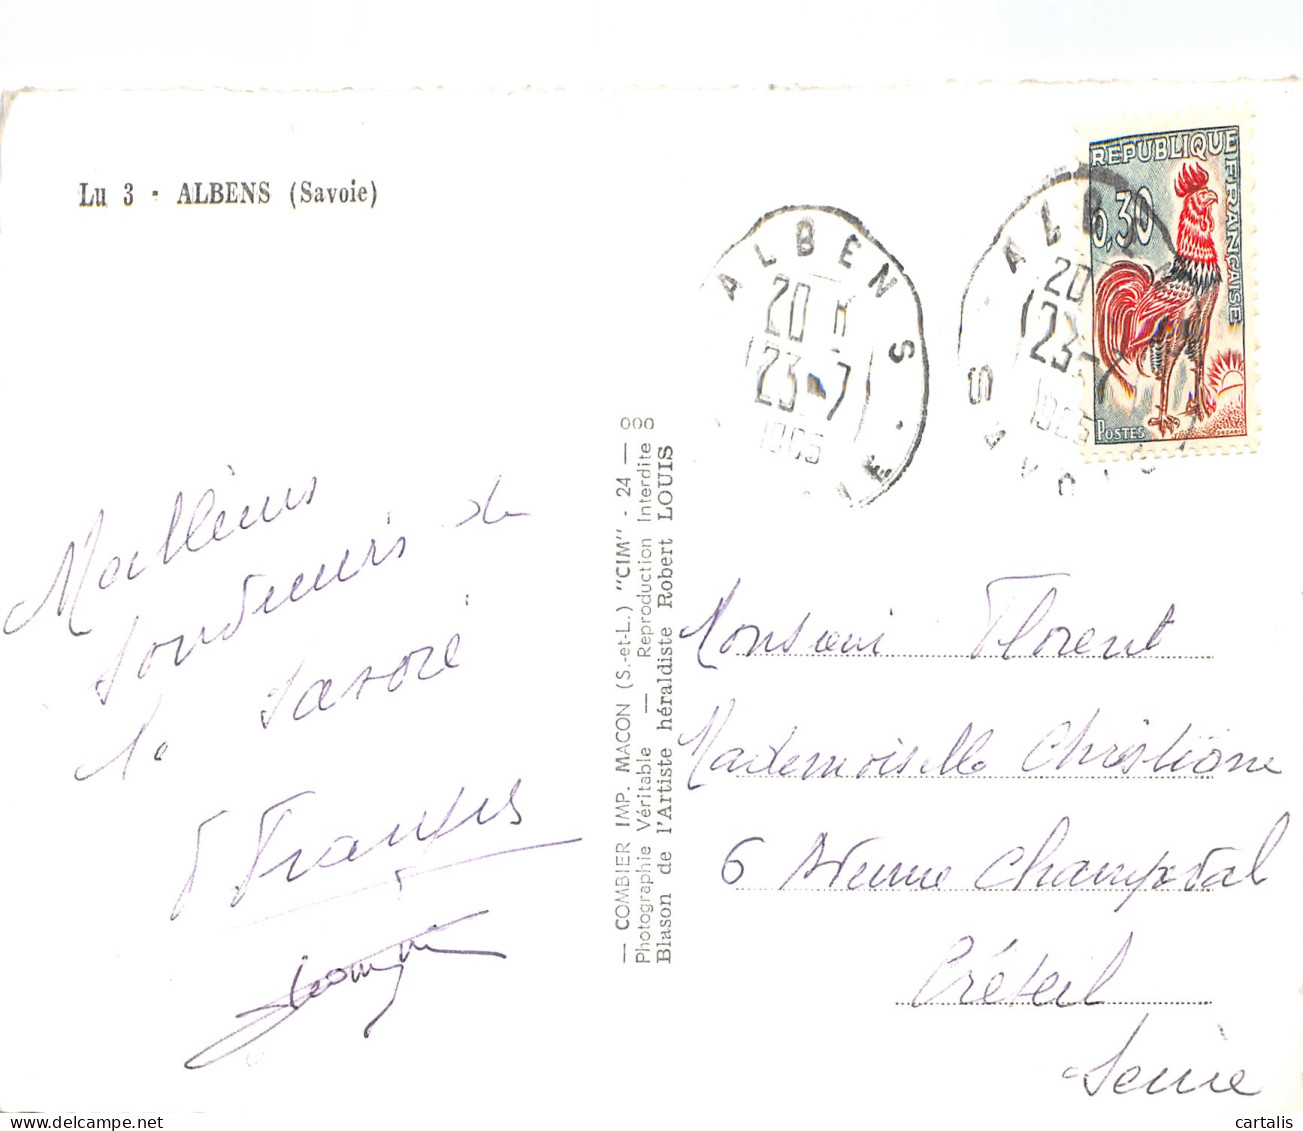 Lu 3 - ALBENS (Savoie)
RÉPUBLIQUE FRANÇAISE
0,30
POSTES
DECARIS
ALBENS
20 H
23-7
1965
ALB
20
23-7
1965
SAVOIE
Meilleurs
souvenirs de
la Savoie
Monsieur Florent
Mademoiselle Christiane
6 Avenue Champval
Créteil
Seine
— COMBIER IMP. MACON (S.-et-L.) "CIM" - 24 — 000
Photographie Véritable — Reproduction Interdite
Blason de l'Artiste héraldiste Robert LOUIS
cartalis
delcampe.net